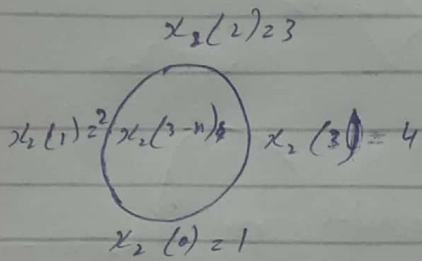 x₂(2)=3
x₂(1)=2 x₂(3-n) x₂(3)=4
x₂(0)=1